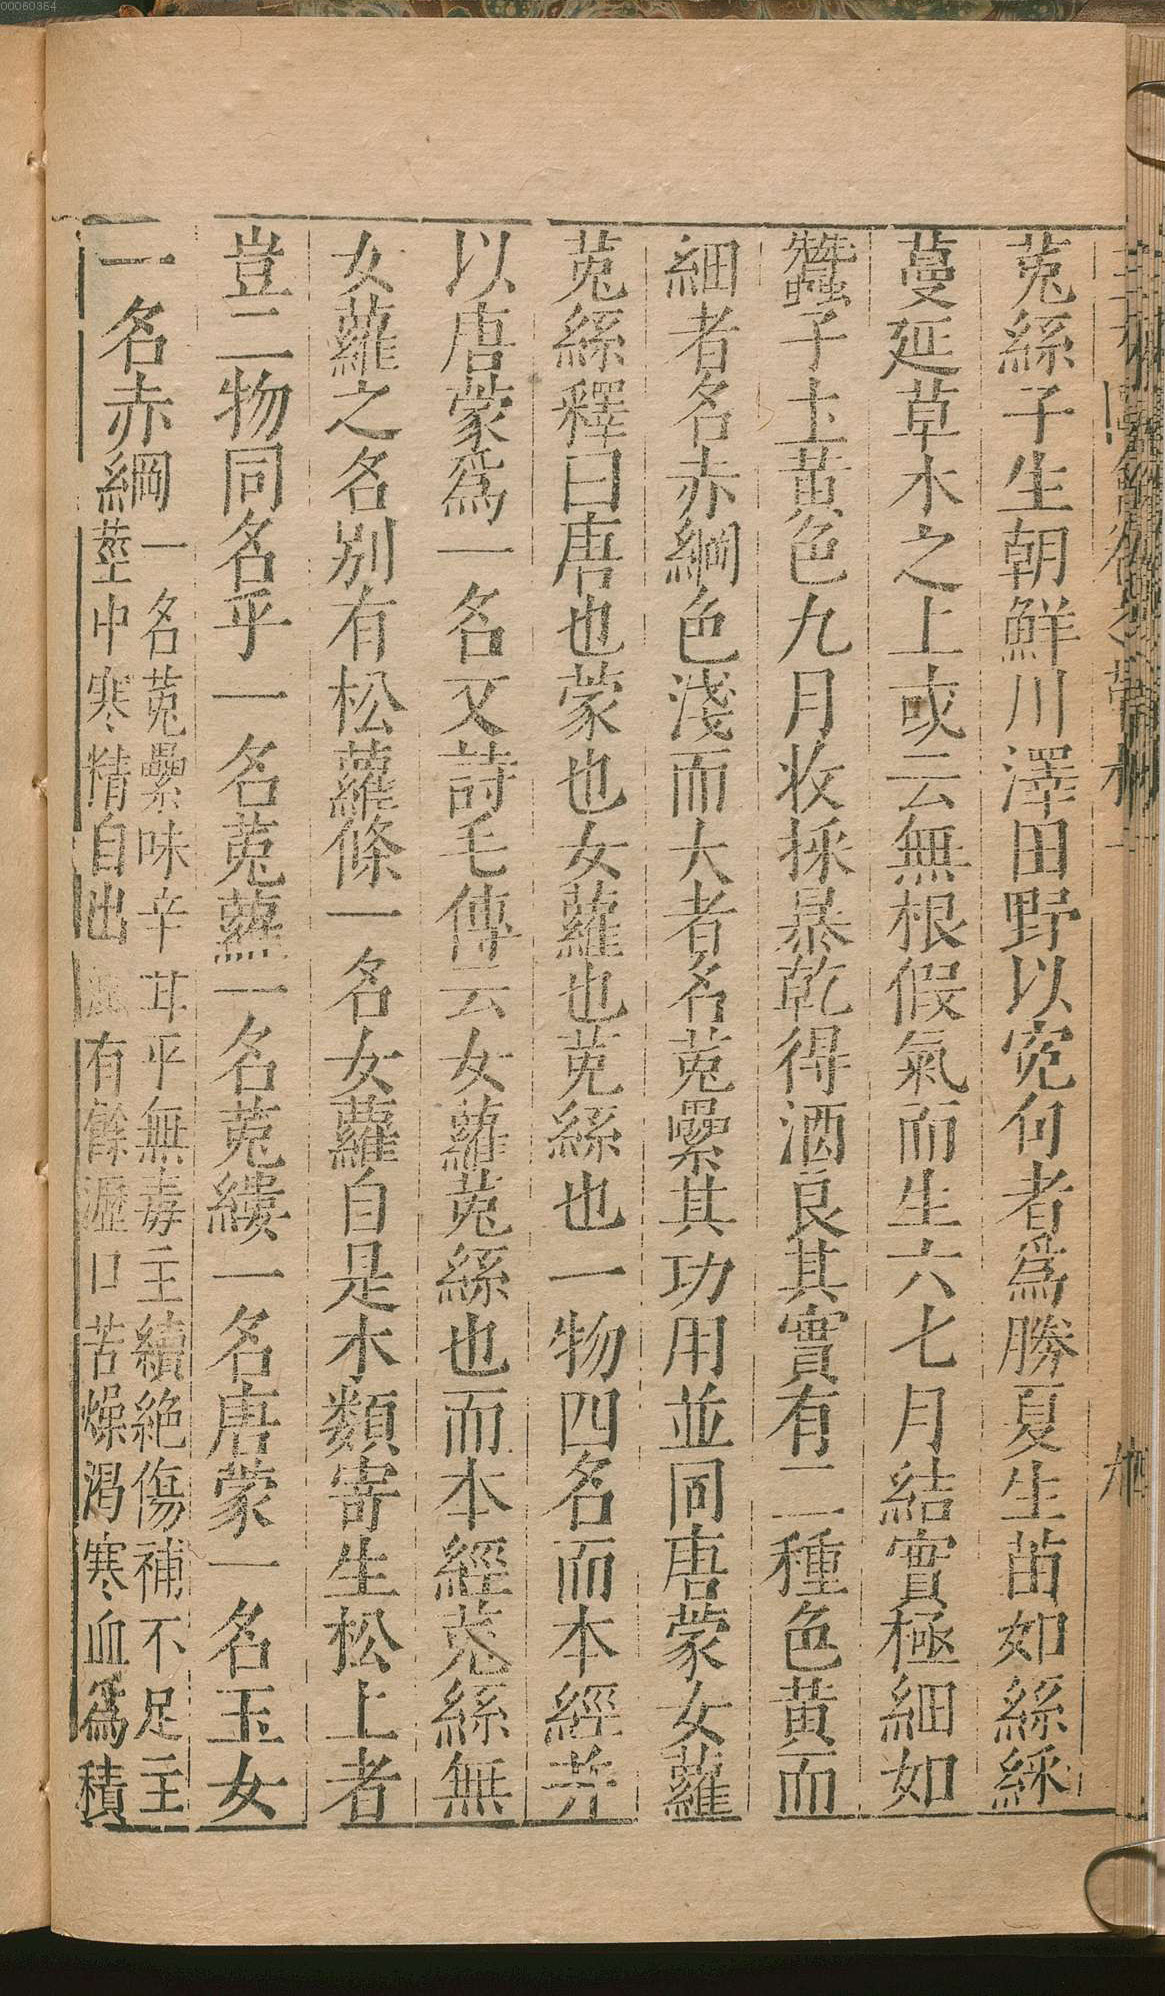 00060364
菟絲子生朝鮮川澤田野以寃句者爲勝夏生苗如絲綵
蔓延草木之上或云無根假氣而生六七月結實極細如
蠶子土黃色九月收採暴乾得酒良其實有二種色黃而
細者名赤綱色淺而大者名菟纍其功用並同唐蒙女蘿
菟絲釋曰唐也蒙也女蘿也菟絲也一物四名而本經并
以唐蒙爲一名又詩毛傳云女蘿菟絲也而本經菟絲無
女蘿之名别有松蘿條一名女蘿自是木類寄生松上者
豈二物同名乎一名菟蘆一名菟縷一名唐蒙一名玉女
一名赤綱一名菟纍味辛甘平無毒主續絶傷補不足主
莖中寒精自出溺有餘瀝口苦燥渴寒血爲積